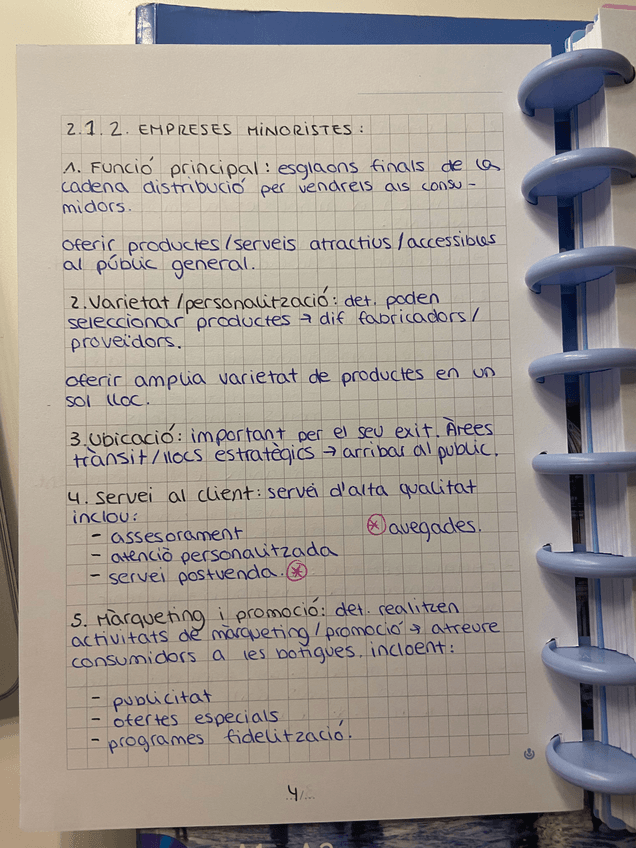 2.1.2. EMPRESES MINORISTES:
1. Funció principal: esglaons finals de la
cadena distribució per vendrels als consu-
midors.
oferir productes/serveis atractius/accessibles
al públic general.
2. Varietat/personalització: det. poden
seleccionar productes → dif fabricadors/
proveïdors.
oferir amplia varietat de productes en un
sol lloc.
3. Ubicació: important per el seu exit. Àrees
trànsit/llocs estratègics → arribar al public.
4. Servei al client: servei d'alta qualitat
inclou:
- assesorament
* avegades.
- atenció personalitzada
- servei postvenda. *
5. Màrqueting i promoció: det. realitzen
activitats de màrqueting/promoció → atreure
consumidors a les botigues. incloent:
- publicitat
- ofertes especials
- programes fidelització.
4